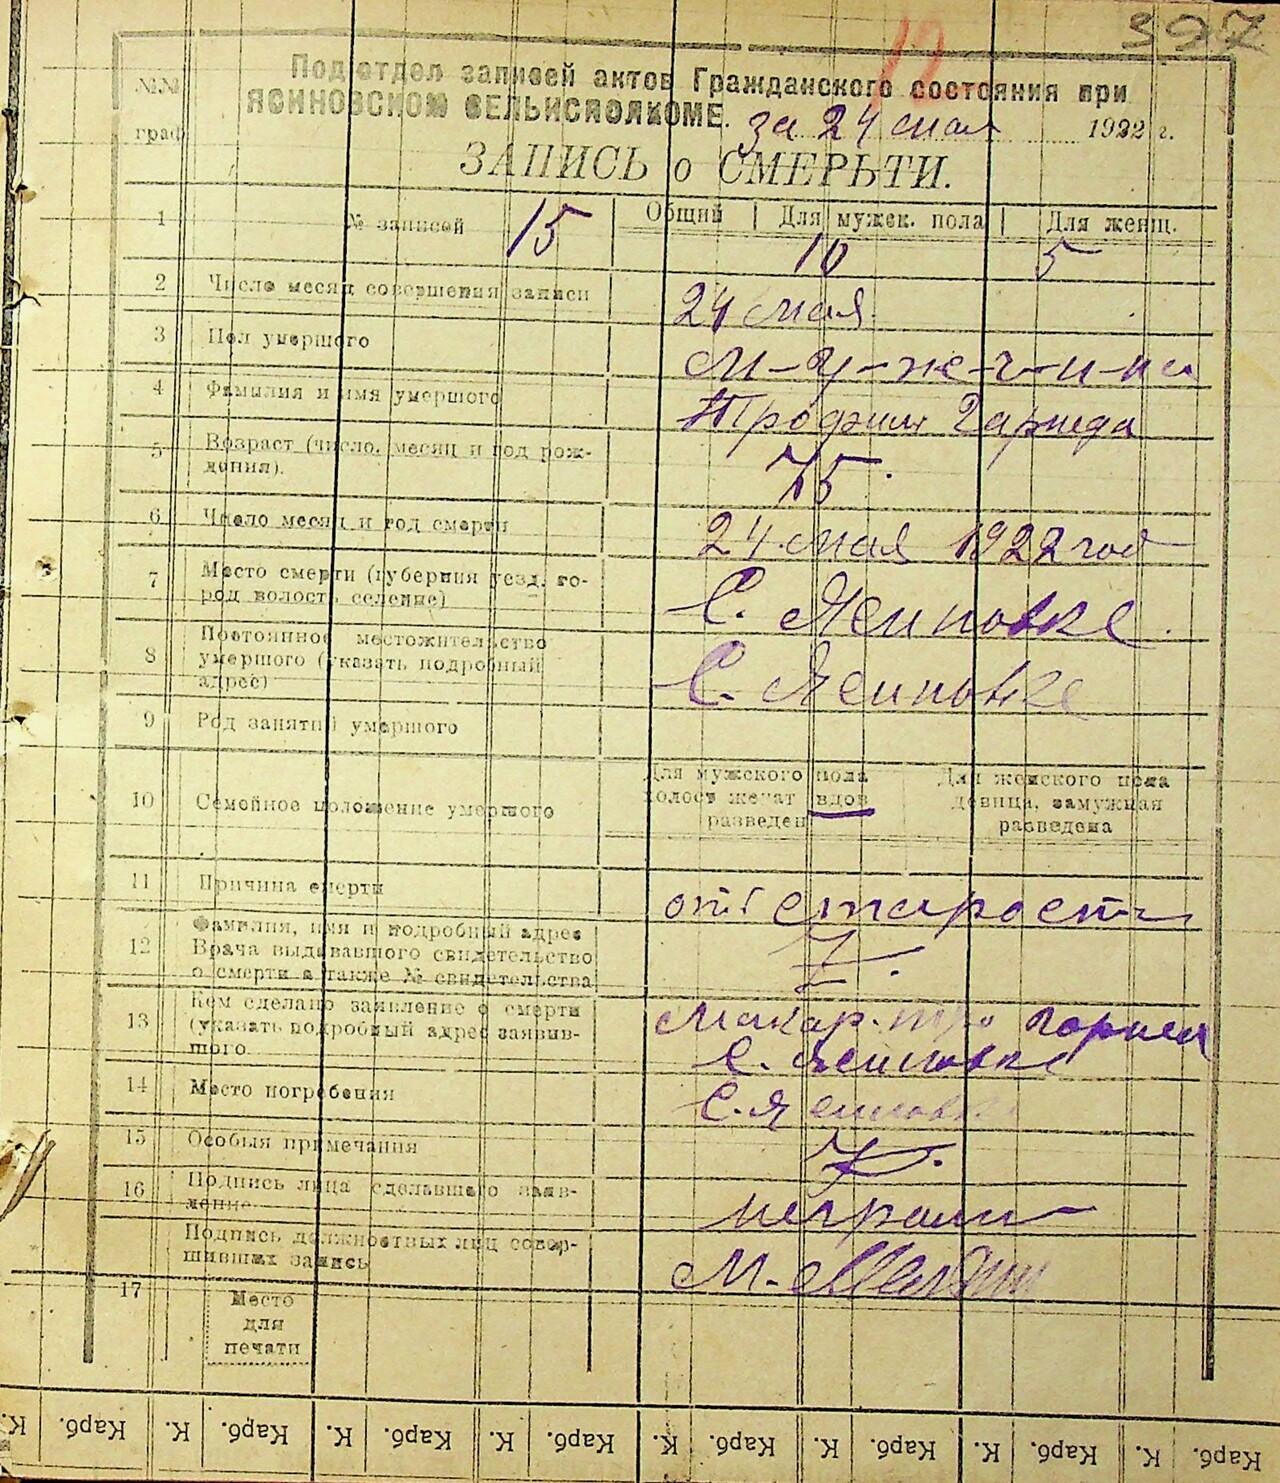 397
12
Подотдел записей актов Гражданского состояния при
ЯСИНОВСКОМ СЕЛЬИСПОЛКОМЕ.
за 24 мая 1922 г.
№№ граф
ЗАПИСЬ о СМЕРЬТИ.
1 № записей 15 Общий Для мужск. пола Для женщ.
10 5
2 Число месяц совершения записи 24 мая.
3 Пол умершого м-у-ж-ч-и-на
4 Фамилия и имя умершого Трофим
5 Возраст (число, месяц и год рож-
дения). 75.
6 Число месяц и год смерти 24 мая 1922 год
7 Место смерти (губерния уезд. го-
род волость селение) С. Ясиновке.
8 Постоянное местожительство
умершого (указать подробный
адрес) С. Ясиновке
9 Род занятий умершого
10 Семейное положение умершого
Для мужского пола
холост женат вдов
разведен
Для женского пола
девица, замужная
разведена
11 Причина смерти от старости
12 Фамилия, имя и подробный адрес
Врача выдававшого свидетельство
о смерти а также № свидетельства
13 Кем сделано заявление о смерти
(указать подробный адрес заявив-
шого Макар.
С. Ясиновке
14 Место погребения С. Ясиновке
15 Особыя примечания
16 Подпись лица сделавшего заяв-
ление
17 Подпись должностных лиц совер-
шивших запись М.
Место
для
печати
К. Карб. К. Карб. К. Карб. К. Карб. К. Карб. К. Карб. К. Карб. К. Карб.